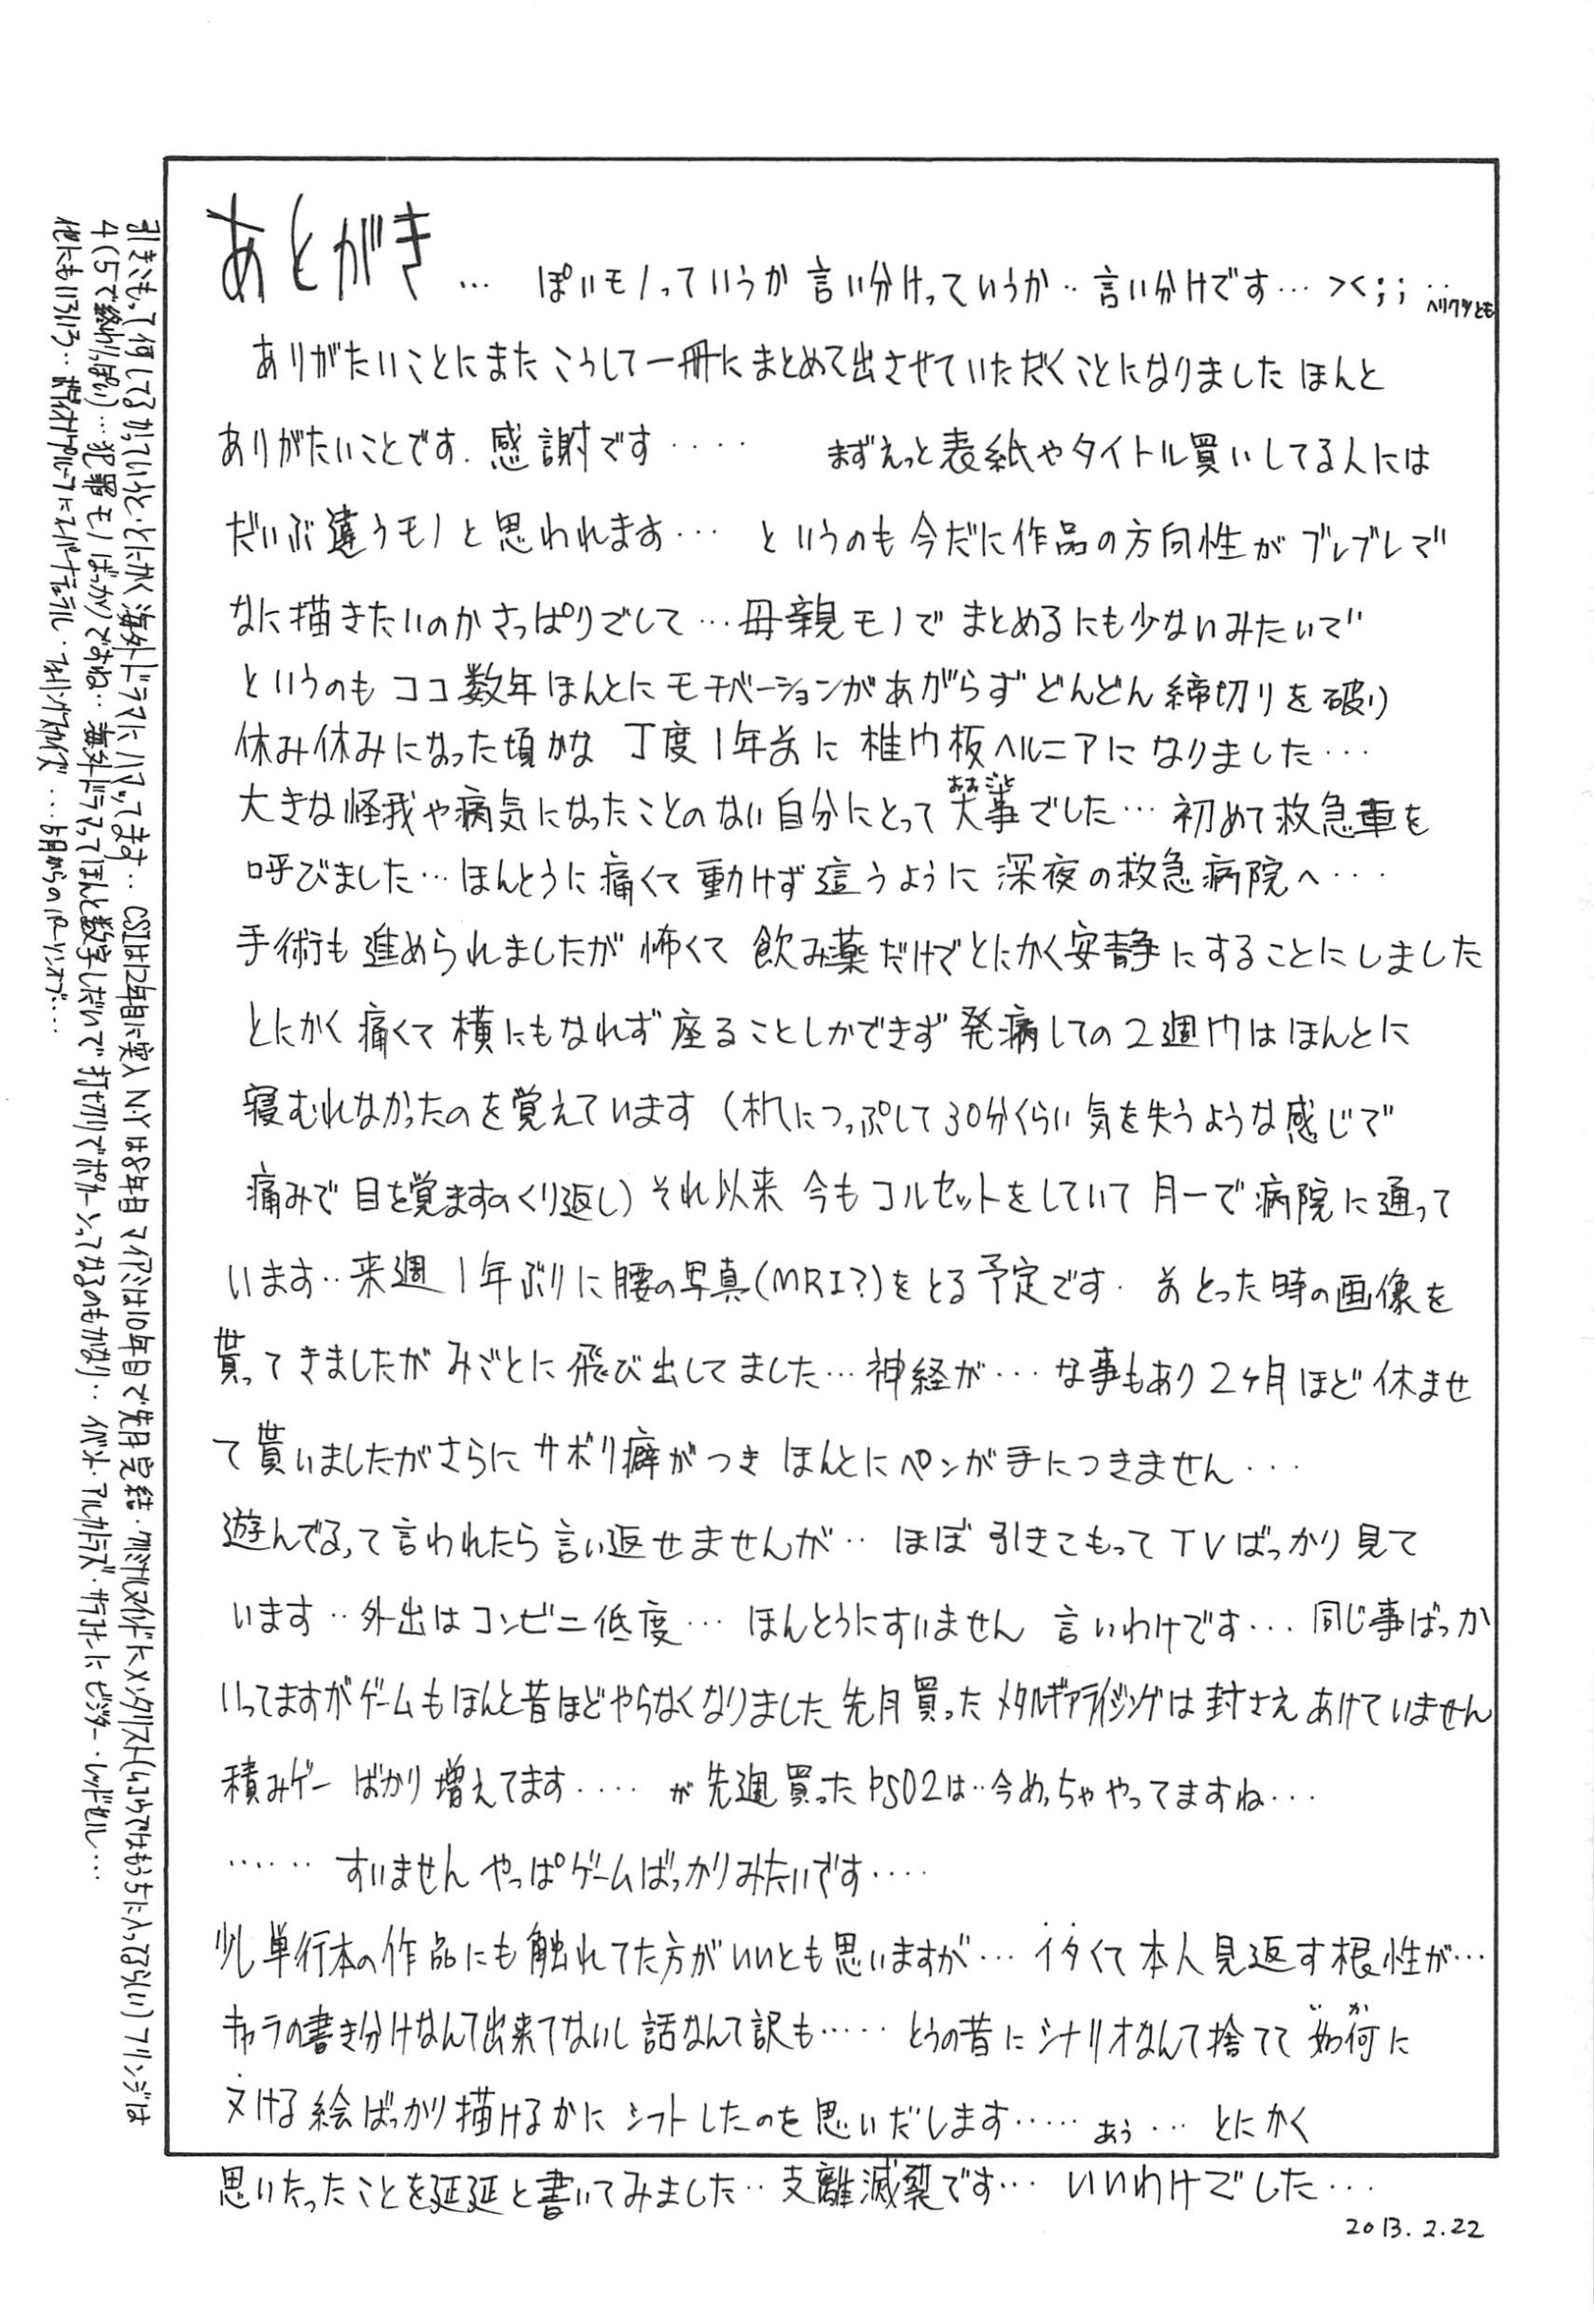 あとがき… ぽいモノっていうか言い分けっていうか‥言い分けです…><;;‥ヘリクツとも
ありがたいことにまたこうして一冊にまとめて出させていただくことになりましたほんと
ありがたいことです.感謝です‥‥ まずえっと表紙やタイトル買いしてる人には
だいぶ違うモノと思われます… というのも今だに作品の方向性がブレブレで
なに描きたいのかさっぱりでして…母親モノでまとめるにも少ないみたいで
というのもココ数年ほんとにモチベーションがあがらずどんどん締切りを破り
休み休みになった頃かな 丁度1年前に椎间板ヘルニアになりました…
大きな怪我や病気になったことのない自分にとって大事おおごとでした…初めて救急車を
呼びました…ほんとうに痛くて動けず這うように深夜の救急病院へ…
手術も進められましたが怖くて飲み薬だけでとにかく安静にすることにしました
とにかく痛くて横にもなれず座ることしかできず発病しての2週间はほんとに
寝むれなかったのを覚えています(机につっぷして30分くらい気を失うような感じで
痛みで目を覚ますのくり返し)それ以来 今もコルセットをしていて月一で病院に通って
います‥来週1年ぶりに腰の写真(MRI?)をとる予定です.前とった時の画像を
貰ってきましたがみごとに飛び出してました…神経が…な事もあり2ヶ月ほど休ませ
て貰いましたがさらにサボリ癖がつきほんとにペンが手につきません…
遊んでるって言われたら言い返せませんが‥ほぼ引きこもってTVばっかり見て
います‥外出はコンビニ低度…ほんとうにすいません 言いわけです…同じ事ばっか
いってますがゲームもほんと昔ほどやらなくなりました先月買ったメタルギアライジングは封さえあけていません
積みゲーばかり増えてます‥‥が先週買ったPSO2は‥今めっちゃやってますね…
‥‥‥すいませんやっぱゲームばっかりみたいです‥‥
少し単行本の作品にも触れてた方がいいとも思いますが…イタくて本人見返す根性が…
キャラの書き分けなんて出来てないし話なんて訳も‥‥‥とうの昔にシナリオなんて捨てて如何いかに
ヌける絵ばっかり描けるかにシフトしたのを思いだします‥‥‥あぅ…とにかく
思いたったことを延延と書いてみました‥支離滅裂です…いいわけでした…
2013.2.22
引きこもって何してるかっていうと・とにかく海外ドラマにハマってます‥CSIは12年目に突入N.Yは8年目マイアミは10年目で先月完結・クリミナルマインドにメンタリスト(むこうではもう5に入ってるらしい)フリンジは
4(5で終わりっぽい)…犯罪モノばっかりですね‥海外ドラマってほんと数字しだいで打セ切りでポカーンってなるのもかなり‥イベント・アルカトラズ・サラコナーに ビジター・レッドセル…
他にもいろいろ‥ボディオブプルーフにスーパーナチュラル・フォーリングスカイズ…5月からのパーソンオブ…